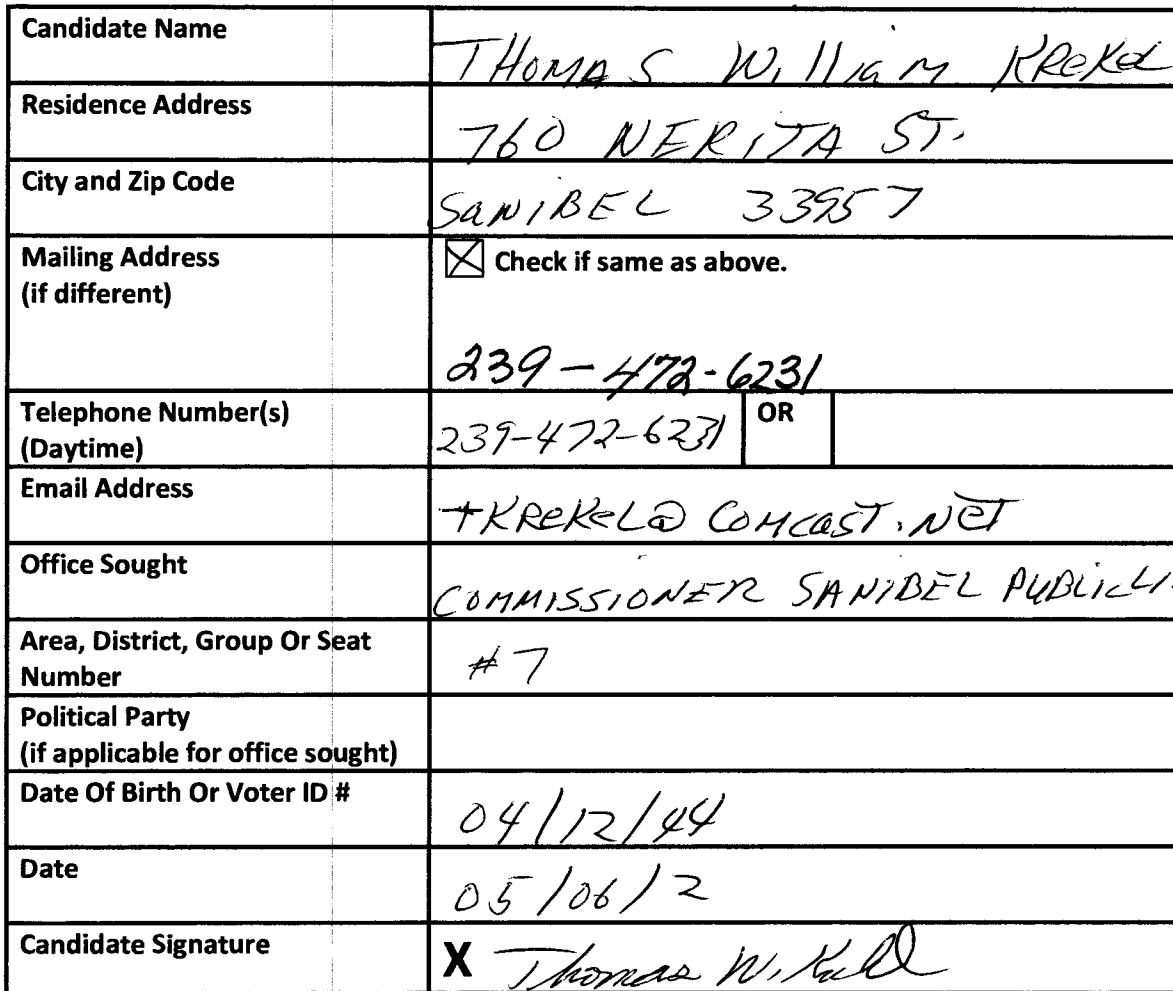 Candidate Name
THOMAS William KReKel
Residence Address
760 NERITA ST.
City and Zip Code
SANIBEL 33957
Mailing Address
(if different)
Check if same as above.
239-472-6231
Telephone Number(s)
(Daytime)
239-472-6231
OR
Email Address
tKReKeL@COMCAST.NeT
Office Sought
COMMISSIONER SANIBEL PUBLIC LI
Area, District, Group Or Seat
Number
#7
Political Party
(if applicable for office sought)
Date Of Birth Or Voter ID #
04/12/44
Date
05/06/2
Candidate Signature
X Thomas W. Krekel